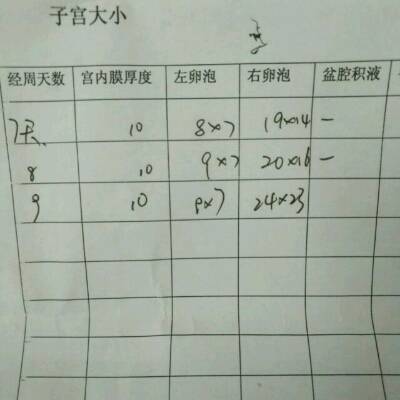 子宫大小
经周天数 宫内膜厚度 左卵泡 右卵泡 盆腔积液
7天 10 8×7 19×14 —
8 10 9×7 20×16 —
9 10 9×7 24×23